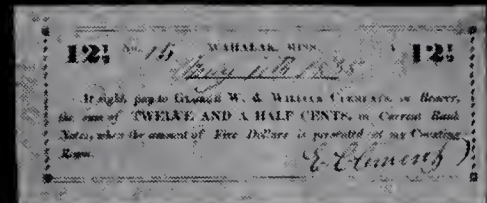 12½ No. 15 WAHALAK, MISS. 12½
At sight, pay to GEORGE W. & WILLIAM CLEMENTS, or Bearer,
the sum of TWELVE AND A HALF CENTS, in Current Bank
Notes, when the amount of Five Dollars is presented at my Counting
Room.
E Clements